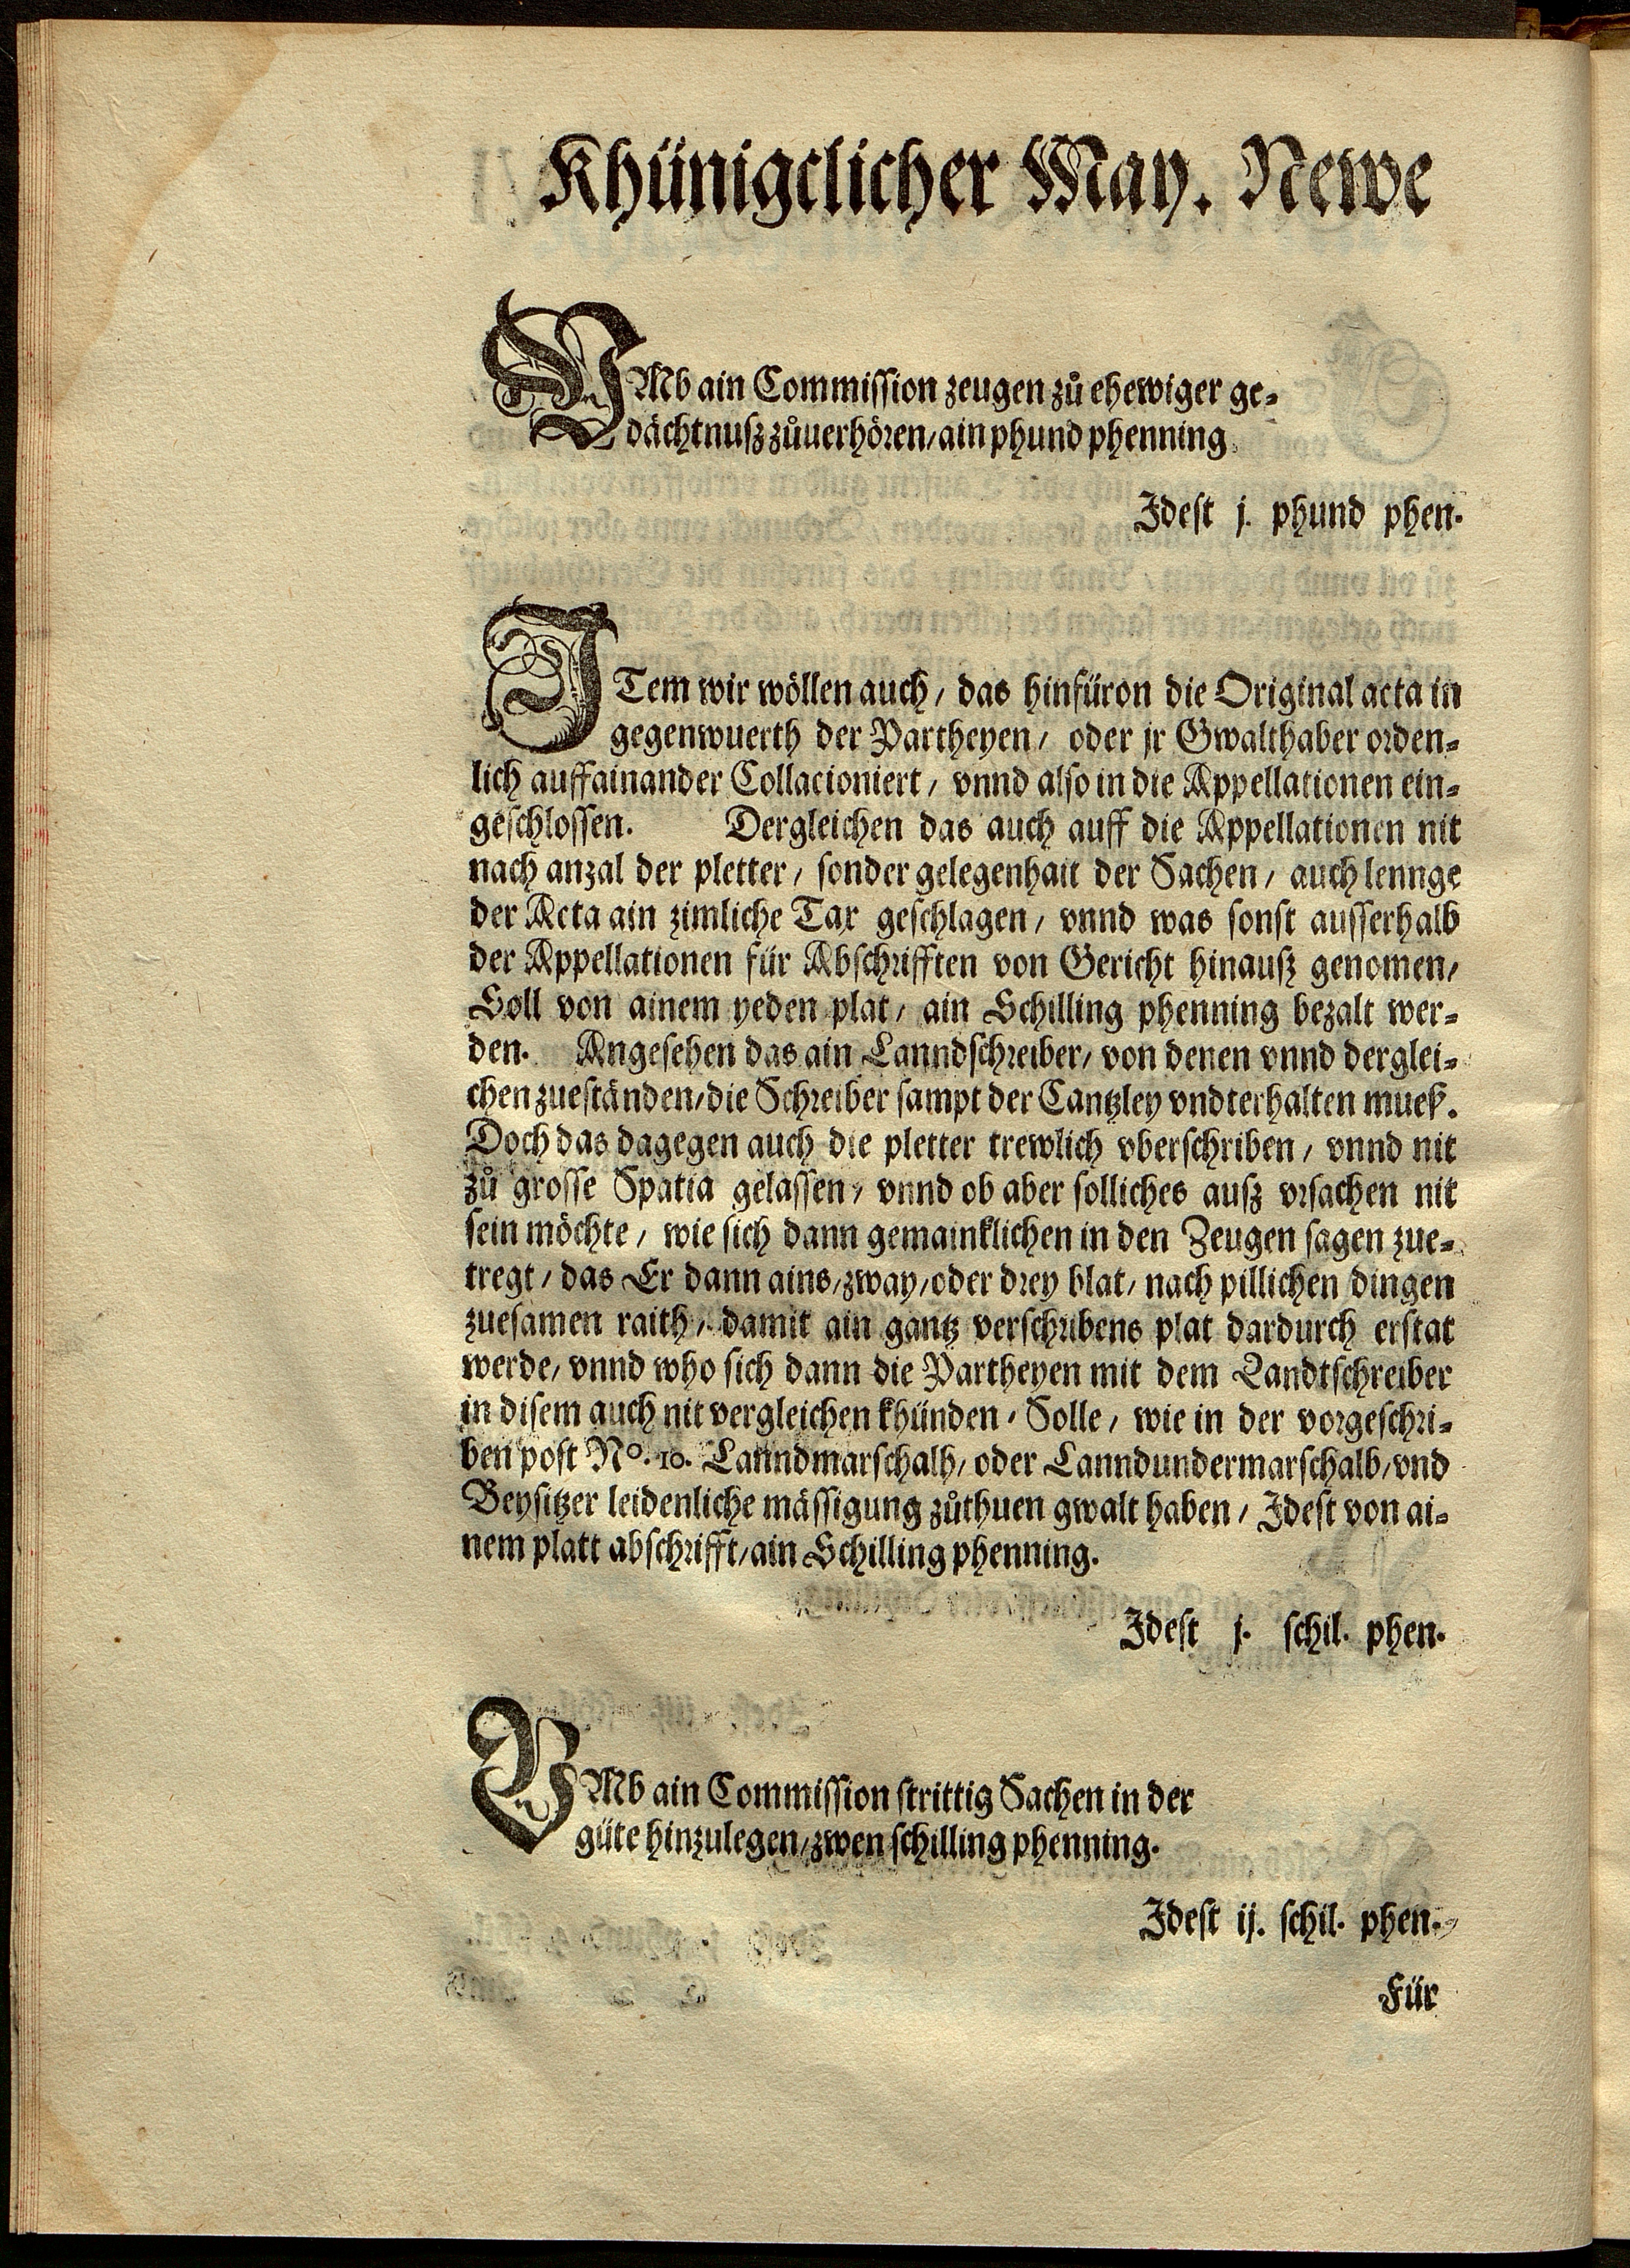 Khünigclicher May. Newe
VMb ain Commission zeugen zů ehewiger ge-
dächtnusz zůuerhören/ ain phund phenning
Idest j. phund phen.
ITem wir wöllen auch / das hinfüron die Original acta in
gegenwuerth der Partheyen / oder jr Gwalthaber orden-
lich auffainander Collacioniert / vnnd also in die Appellationen ein-
geschlossen. Dergleichen das auch auff die Appellationen nit
nach anzal der pletter / sonder gelegenhait der Sachen / auch lennge
der Acta ain zimliche Tax geschlagen / vnnd was sonst ausserhalb
der Appellationen für Abschrifften von Gericht hinausz genomen/
Soll von ainem yeden plat / ain Schilling phenning bezalt wer-
den. Angesehen das ain Lanndschreiber / von denen vnnd derglei-
chen zueständen / die Schreiber sampt der Cantzley vndterhalten mueß.
Doch das dagegen auch die pletter trewlich vberschriben / vnnd nit
zů grosse Spatia gelassen / vnnd ob aber solliches ausz vrsachen nit
sein möchte / wie sich dann gemainklichen in den Zeugen sagen zue-
tregt / das Er dann ains / zway / oder drey blat / nach pillichen dingen
zuesamen raith / damit ain gantz verschribens plat dardurch erstat
werde / vnnd who sich dann die Partheyen mit dem Landtschreiber
in disem auch nit vergleichen khünden / Solle / wie in der vorgeschri-
ben post No. 10. Lanndmarschalh / oder Lanndundermarschalb / vnd
Beysitzer leidenliche mässigung zůthuen gwalt haben / Idest von ai-
nem platt abschrifft / ain Schilling phenning.
Idest j. schil. phen.
VMb ain Commission strittig Sachen in der
güte hinzulegen / zwen schilling phenning.
Idest ij. schil. phen.
Für